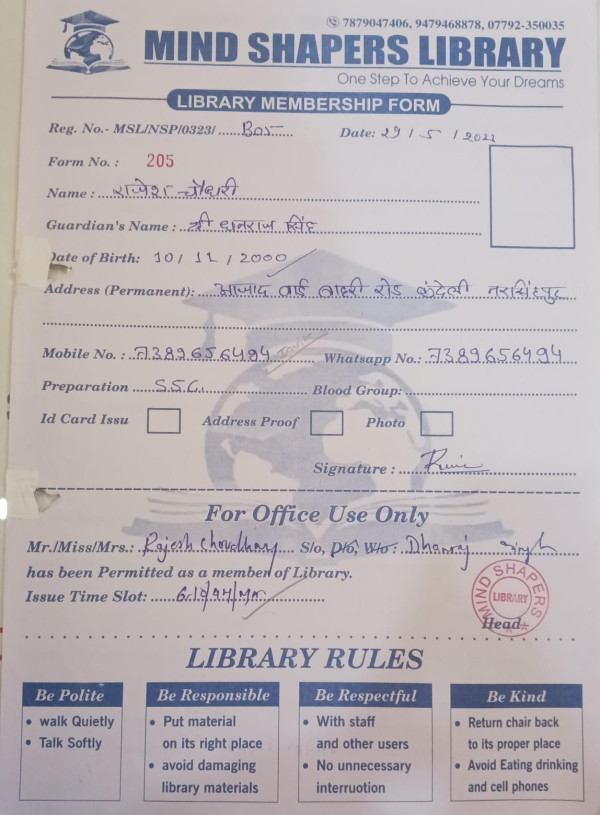 7879047406, 9479468878, 07792-350035
MIND SHAPERS LIBRARY
One Step To Achieve Your Dreams
LIBRARY MEMBERSHIP FORM
Reg. No.- MSL/NSP/0323/...... Date: 29/5/2022
Form No. : 205
Name : राजेश चौधरी
Guardian's Name : श्री धनराज सिंह
Date of Birth: 10/11/2000
Address (Permanent): आजाद वार्ड रोड कंदेली नरसिंहपुर
Mobile No. : 7389656494 Whatsapp No.: 7389656494
Preparation S.S.C. Blood Group:
Id Card Issu Address Proof Photo
Signature :
For Office Use Only
Mr./Miss/Mrs.: Rajesh Choudhary S/o, D/o, W/o : Dhanraj Singh
has been Permitted as a member of Library.
Issue Time Slot:
MIND SHAPERS
LIBRARY
Head
LIBRARY RULES
Be Polite
• walk Quietly
• Talk Softly
Be Responsible
• Put material
on its right place
• avoid damaging
library materials
Be Respectful
• With staff
and other users
• No unnecessary
interruotion
Be Kind
• Return chair back
to its proper place
• Avoid Eating drinking
and cell phones